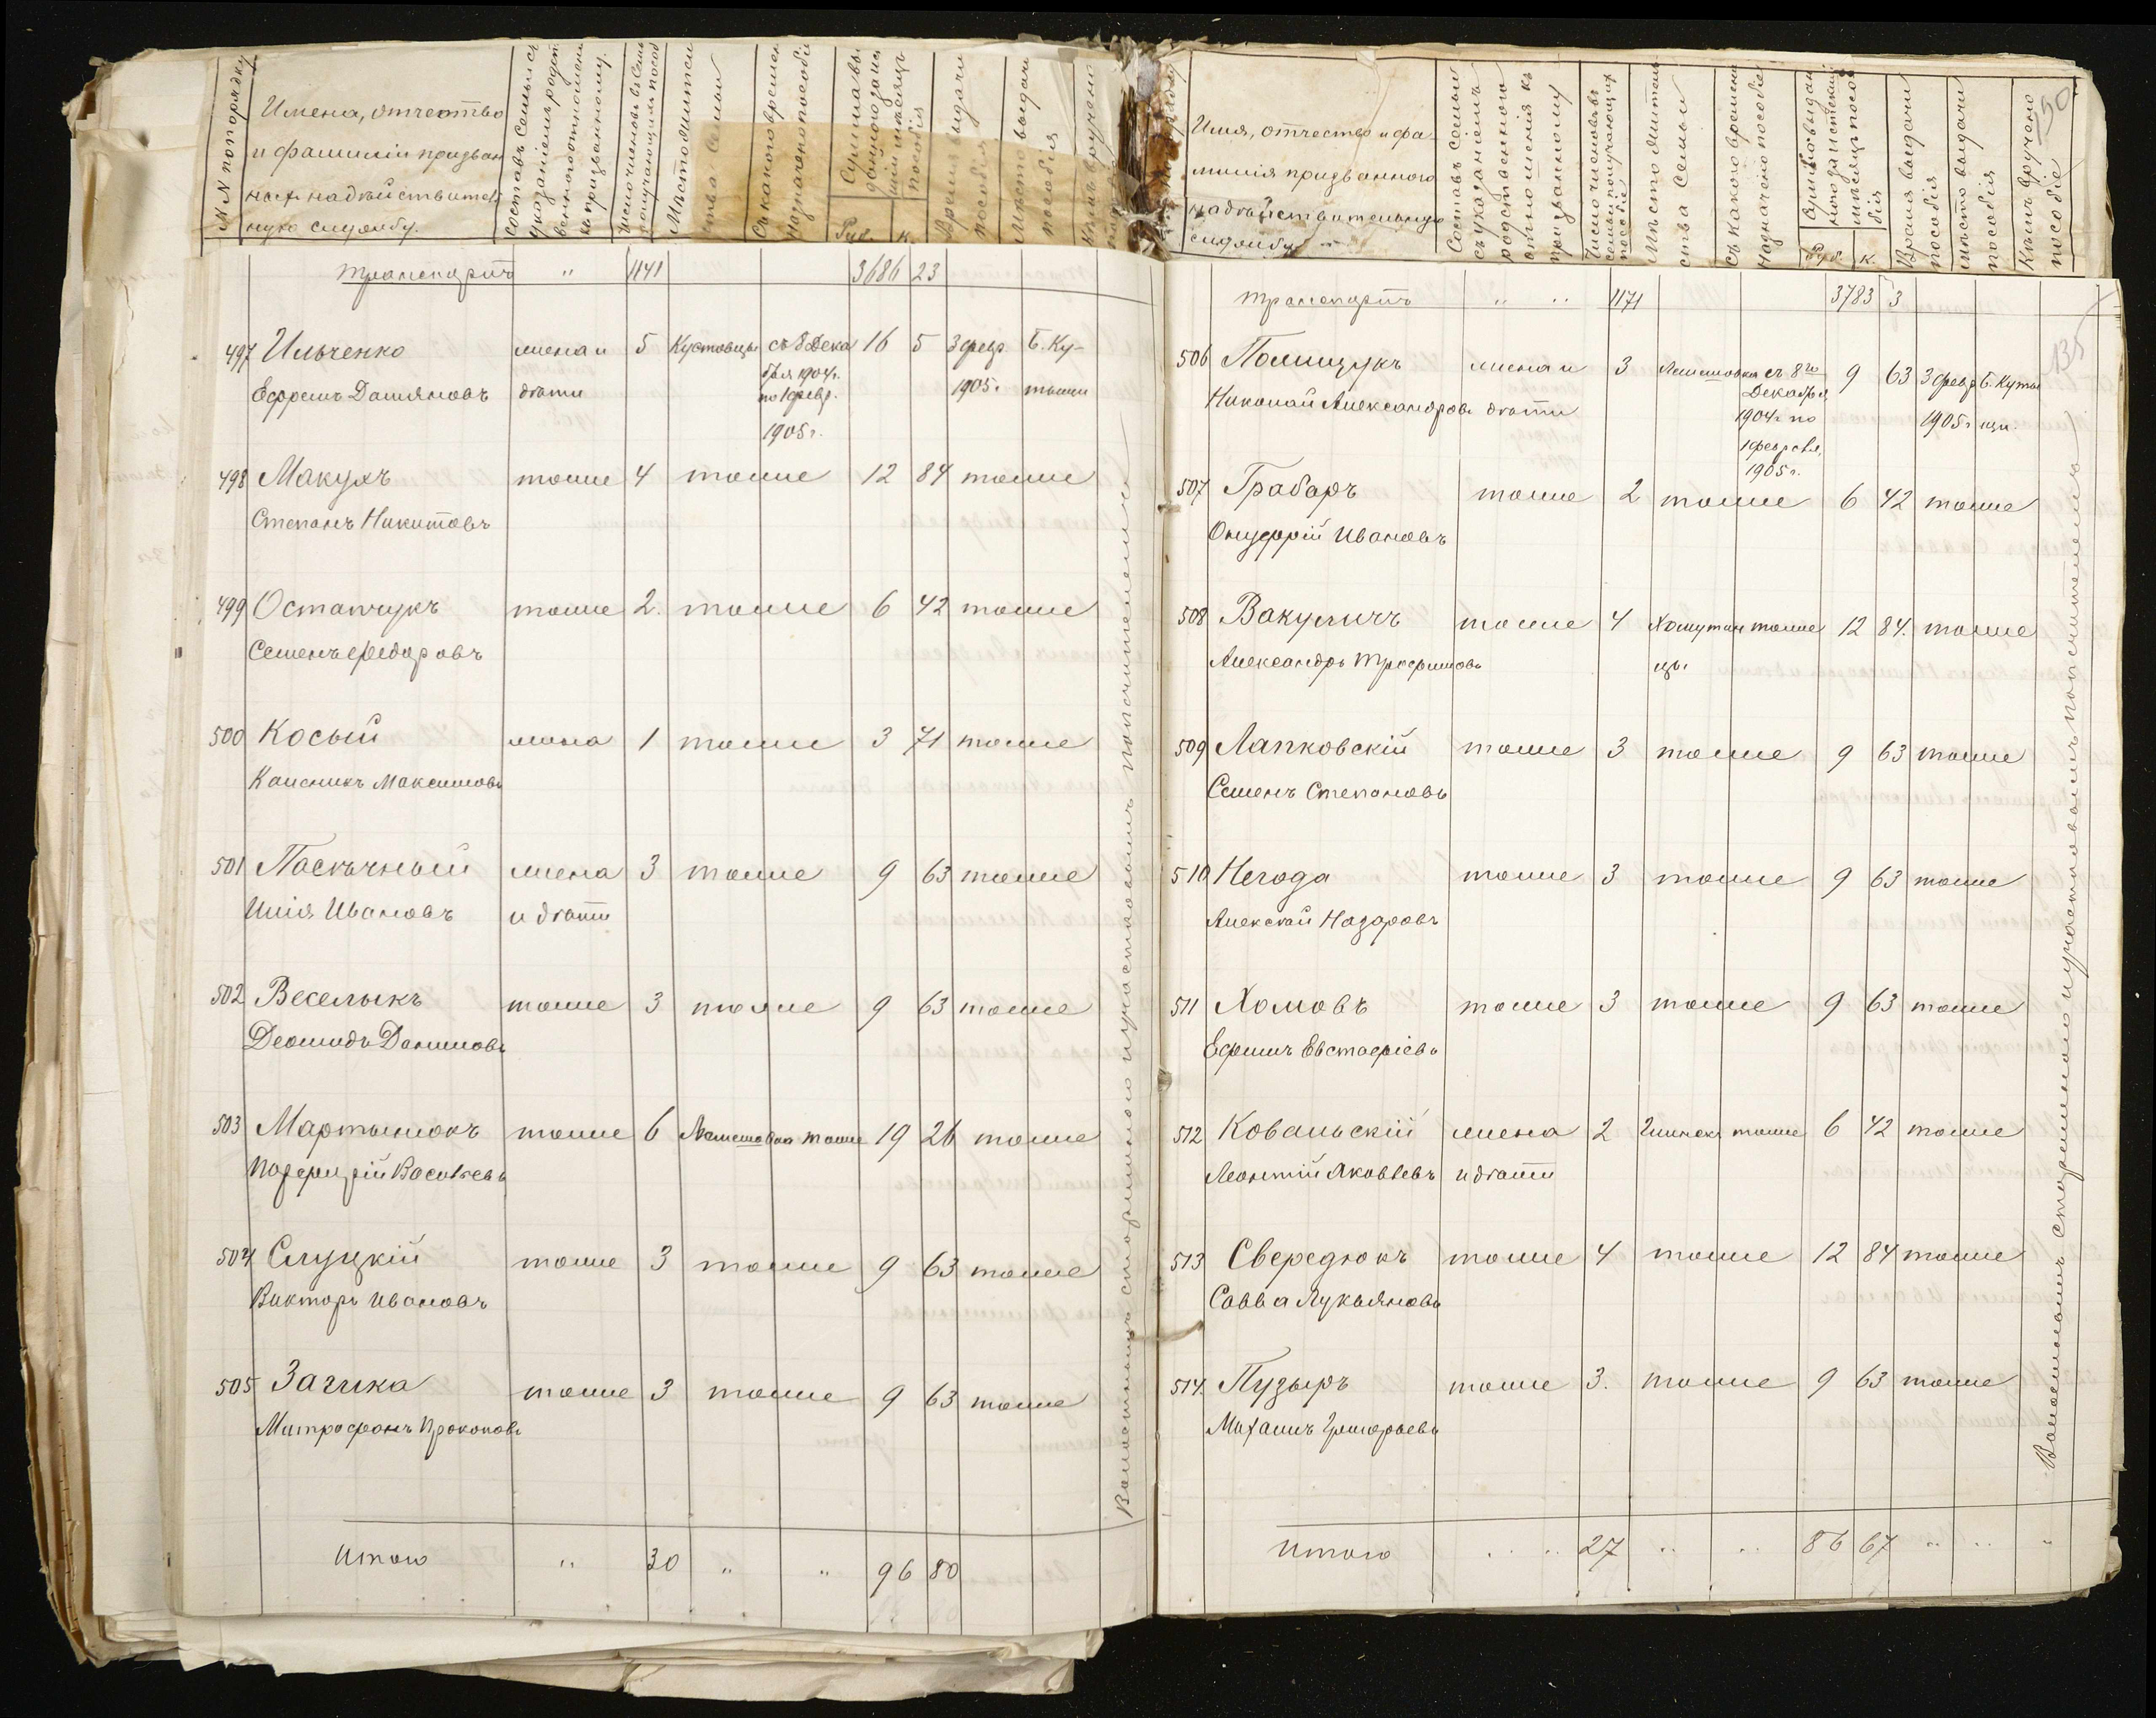 №№ по порядку
Имена, отчество
и фамиліи призван
ныхъ на дѣйствитель
ную службу.
Составъ семьи съ
указаніемъ родст
веннаго отношенія
къ призванному.
Число членовъ въ семьѣ
получающихъ пособ
Мѣстожитель
ства семьи
Съ какого времени
назначено пособіе
Сумма вы
даннаго за
мѣсяцъ
пособія
Руб. к.
Время выдачи
пособія
Мѣсто выдачи
пособія
Кѣмъ вручено
транспортъ " 1141 3686 23
497 Ильченко жена и 5 Кустовцы съ 8 Дека 16 5 3 февр. Б. Ку-
бря 1904 г.
Ефремъ Дамяновъ дѣти по 1 февр. 1905 г. тыщи
1905 г.
498 Макухъ тоже 4 тоже 12 84 тоже
Степанъ Никитовъ
499 Остапчукъ тоже 2. тоже 6 42 тоже
Семенъ Федоровъ
500 Косый жена 1 тоже 3 71 тоже
Калсникъ Максимовъ
501 Пасѣчный жена 3 тоже 9 63 тоже
Илія Ивановъ и дѣти
502 Веселыкъ тоже 3 тоже 9 63 тоже
Деомидъ Даниловъ
503 Мартынюкъ тоже 6 Лемешовка тоже 19 26 тоже
Порфирій Васильевъ
504 Слуцкій тоже 3 тоже 9 63 тоже
Викторъ Ивановъ
505 Загика тоже 3 тоже 9 63 тоже
Митрофанъ Прокоповъ
Итого " 30 " " 96 80
Волостнымъ старшиною и участковымъ попечителемъ
Имя, отчество и фа
милія призваннаго
на дѣйствительную
службу
Составъ семьи
съ указаніемъ
родственнаго
отношенія къ
призванному
Число членовъ
семьи получающихъ
пособіе
Мѣсто житель
ства семьи
Съ какого времени
назначено пособіе
Руб. к.
Время выдачи
пособія
Мѣсто выдачи
пособія
Кѣмъ вручено
пособіе
50
135
транспортъ " " 1171 3783 3
506 Полищукъ жена и 3 Лемешовка съ 8го 9 63 3 февр Б. Куты
Декабря
Николай Александровъ дѣти 1904 г. по 1905 г. щи.
1 февраля
1905 г.
507 Грабаръ тоже 2 тоже 6 42 тоже
Онуфрій Ивановъ
508 Вакуличъ тоже 4 Хомутин тоже 12 84. тоже
Александръ Трофимовъ цы
509 Лапковскій тоже 3 тоже 9 63 тоже
Семенъ Степановъ
510 Негода тоже 3 тоже 9 63 тоже
Алексѣй Назаровъ
511 Хомовъ тоже 3 тоже 9 63 тоже
Ефимъ Евстафіевъ
512 Ковальскій жена 2 тоже 6 42 тоже
Леонтій Яковлевъ и дѣти
513 Свередюкъ тоже 4 тоже 12 84 тоже
Савва Лукьяновъ
514. Пузыръ тоже 3. тоже 9 63 тоже
Михаилъ Григорьевъ
Итого 27 " " 86 67 " " "
Волостнымъ старшиною и участковымъ попечителемъ